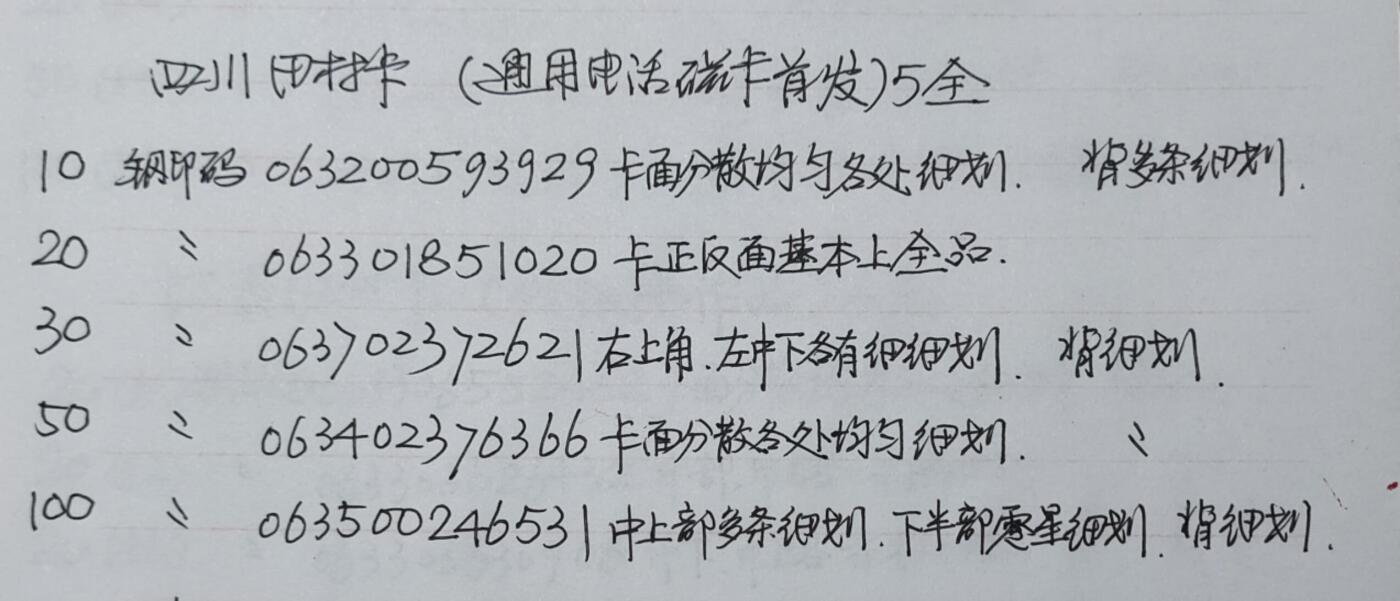 四川田村卡 (通用电话磁卡首发)5全
10 钢印码 063200593929 卡面分散均匀各处细划. 背多条细划.
20 〃 063301851020 卡正反面基本上全品.
30 〃 063702372621 右上角.左中下各有细细划. 背细划.
50 〃 063402376366 卡面分散各处均匀细划. 〃
100 〃 063500246531 中上部多条细划.下半部零星细划.背细划.